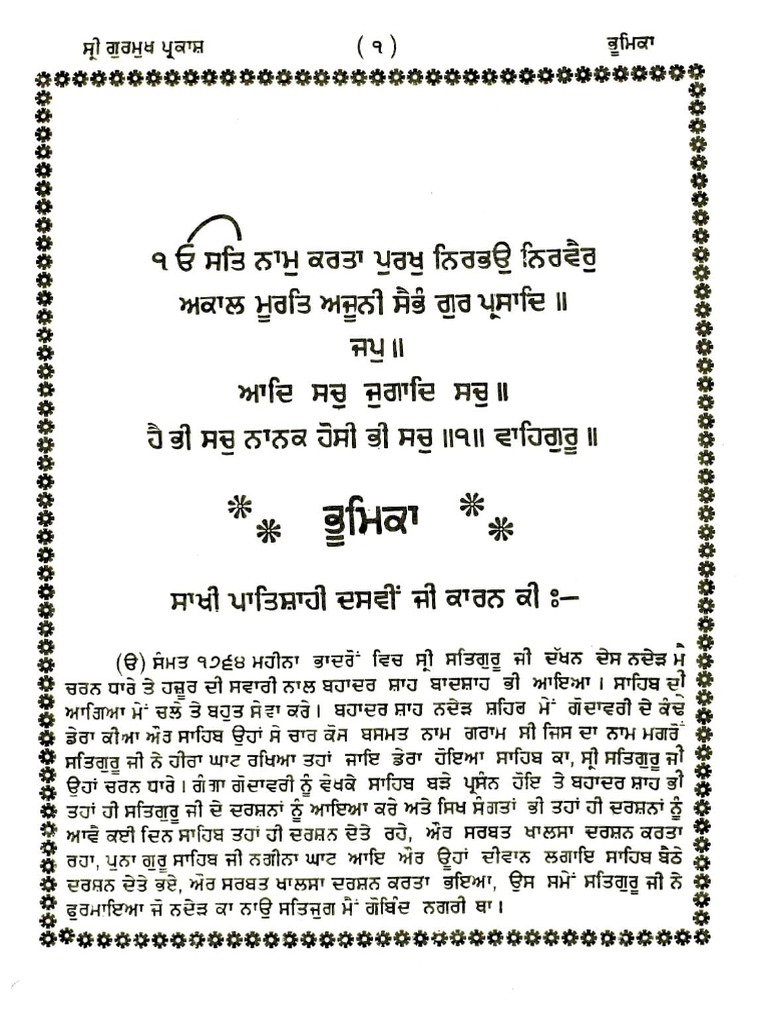 ਸ੍ਰੀ ਗੁਰਮੁਖ ਪ੍ਰਕਾਸ਼ (੧) ਭੂਮਿਕਾ
੧ਓ ਸਤਿ ਨਾਮੁ ਕਰਤਾ ਪੁਰਖੁ ਨਿਰਭਉ ਨਿਰਵੈਰੁ
ਅਕਾਲ ਮੂਰਤਿ ਅਜੂਨੀ ਸੈਭੰ ਗੁਰ ਪ੍ਰਸਾਦਿ ॥
ਜਪੁ ॥
ਆਦਿ ਸਚੁ ਜੁਗਾਦਿ ਸਚੁ ॥
ਹੈ ਭੀ ਸਚੁ ਨਾਨਕ ਹੋਸੀ ਭੀ ਸਚੁ ॥੧॥ ਵਾਹਿਗੁਰੂ ॥
ਭੂਮਿਕਾ
ਸਾਖੀ ਪਾਤਿਸ਼ਾਹੀ ਦਸਵੀਂ ਜੀ ਕਾਰਨ ਕੀ :—
(ੳ) ਸੰਮਤ ੧੭੬੪ ਮਹੀਨਾ ਭਾਦਰੋਂ ਵਿਚ ਸ੍ਰੀ ਸਤਿਗੁਰੂ ਜੀ ਦੱਖਨ ਦੇਸ ਨਦੇੜ ਮੈ
ਚਰਨ ਧਾਰੇ ਤੇ ਹਜ਼ੂਰ ਦੀ ਸਵਾਰੀ ਨਾਲ ਬਹਾਦਰ ਸ਼ਾਹ ਬਾਦਸ਼ਾਹ ਭੀ ਆਇਆ । ਸਾਹਿਬ ਦੀ
ਆਗਿਆ ਮੇਂ ਚਲੇ ਤੇ ਬਹੁਤ ਸੇਵਾ ਕਰੇ । ਬਹਾਦਰ ਸ਼ਾਹ ਨਦੇੜ ਸ਼ਹਿਰ ਮੇਂ ਗੋਦਾਵਰੀ ਦੇ ਕੰਢੇ
ਡੇਰਾ ਕੀਆ ਔਰ ਸਾਹਿਬ ਉਹਾਂ ਸੇ ਚਾਰ ਕੋਸ ਬਸਮਤ ਨਾਮ ਗਰਾਮ ਸੀ ਜਿਸ ਦਾ ਨਾਮ ਮਗਰੋਂ
ਸਤਿਗੁਰੂ ਜੀ ਨੇ ਹੀਰਾ ਘਾਟ ਰਖਿਆ ਤਹਾਂ ਜਾਇ ਡੇਰਾ ਹੋਇਆ ਸਾਹਿਬ ਕਾ, ਸ੍ਰੀ ਸਤਿਗੁਰੂ ਜੀ
ਉਹਾਂ ਚਰਨ ਧਾਰੇ । ਗੰਗਾ ਗੋਦਾਵਰੀ ਨੂੰ ਵੇਖਕੇ ਸਾਹਿਬ ਬੜੇ ਪ੍ਰਸੰਨ ਹੋਇ ਤੇ ਬਹਾਦਰ ਸ਼ਾਹ ਭੀ
ਤਹਾਂ ਹੀ ਸਤਿਗੁਰੂ ਜੀ ਦੇ ਦਰਸ਼ਨਾਂ ਨੂੰ ਆਇਆ ਕਰੇ ਅਤੇ ਸਿਖ ਸੰਗਤਾਂ ਭੀ ਤਹਾਂ ਹੀ ਦਰਸ਼ਨਾਂ ਨੂੰ
ਆਵੈ ਕਈ ਦਿਨ ਸਾਹਿਬ ਤਹਾਂ ਹੀ ਦਰਸ਼ਨ ਦੇਤੇ ਰਹੇ, ਔਰ ਸਰਬਤ ਖਾਲਸਾ ਦਰਸ਼ਨ ਕਰਤਾ
ਰਹਾ, ਪੁਨਾ ਗੁਰੂ ਸਾਹਿਬ ਜੀ ਨਗੀਨਾ ਘਾਟ ਆਇ ਔਰ ਊਹਾਂ ਦੀਵਾਨ ਲਗਾਇ ਸਾਹਿਬ ਬੈਠੇ
ਦਰਸ਼ਨ ਦੇਤੇ ਭਏ, ਔਰ ਸਰਬਤ ਖਾਲਸਾ ਦਰਸ਼ਨ ਕਰਤਾ ਭਇਆ, ਉਸ ਸਮੇਂ ਸਤਿਗੁਰੂ ਜੀ ਨੇ
ਫੁਰਮਾਇਆ ਜੋ ਨਦੇੜ ਕਾ ਨਾਉ ਸਤਿਜੁਗ ਮੈਂ ਗੋਬਿੰਦ ਨਗਰੀ ਥਾ ।